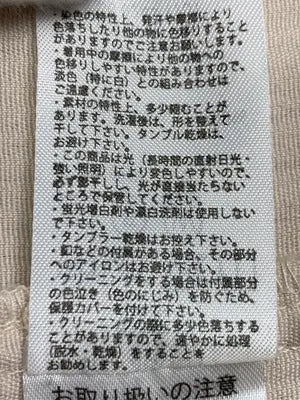 ・染色の特性上、発汗や摩擦により
色落ちしたり他の物に色移りすること
がありますのでご注意お願いします。
・着用中の摩擦により他の物への
色移りしやすい特性がありますので、
淡色（特に白）との組み合わせは
ご遠慮ください。
・素材の特性上、多少縮むことが
あります。洗濯後は、形を整えて
干して下さい。タンブル乾燥は、
お避け下さい。
・この商品は光（長時間の直射日光・
強い照明）により変色しやすいので、
必ず影干しし、光が直接当たらない
ところで保管してください。
・蛍光増白剤や漂白洗剤は使用しない
で下さい。
・タンブラー乾燥はお控え下さい。
・釦などの付属がある場合、その部分
へのアイロンはお避け下さい。
・クリーニングをする場合は付属部分
の色泣き（色のにじみ）を防ぐため、
保護カバーを付けて下さい。
・クリーニングの際に多少色落ちする
ことがありますので、速やかに処理
（脱水・乾燥）をすることを
お勧めします。
お取り扱いの注意